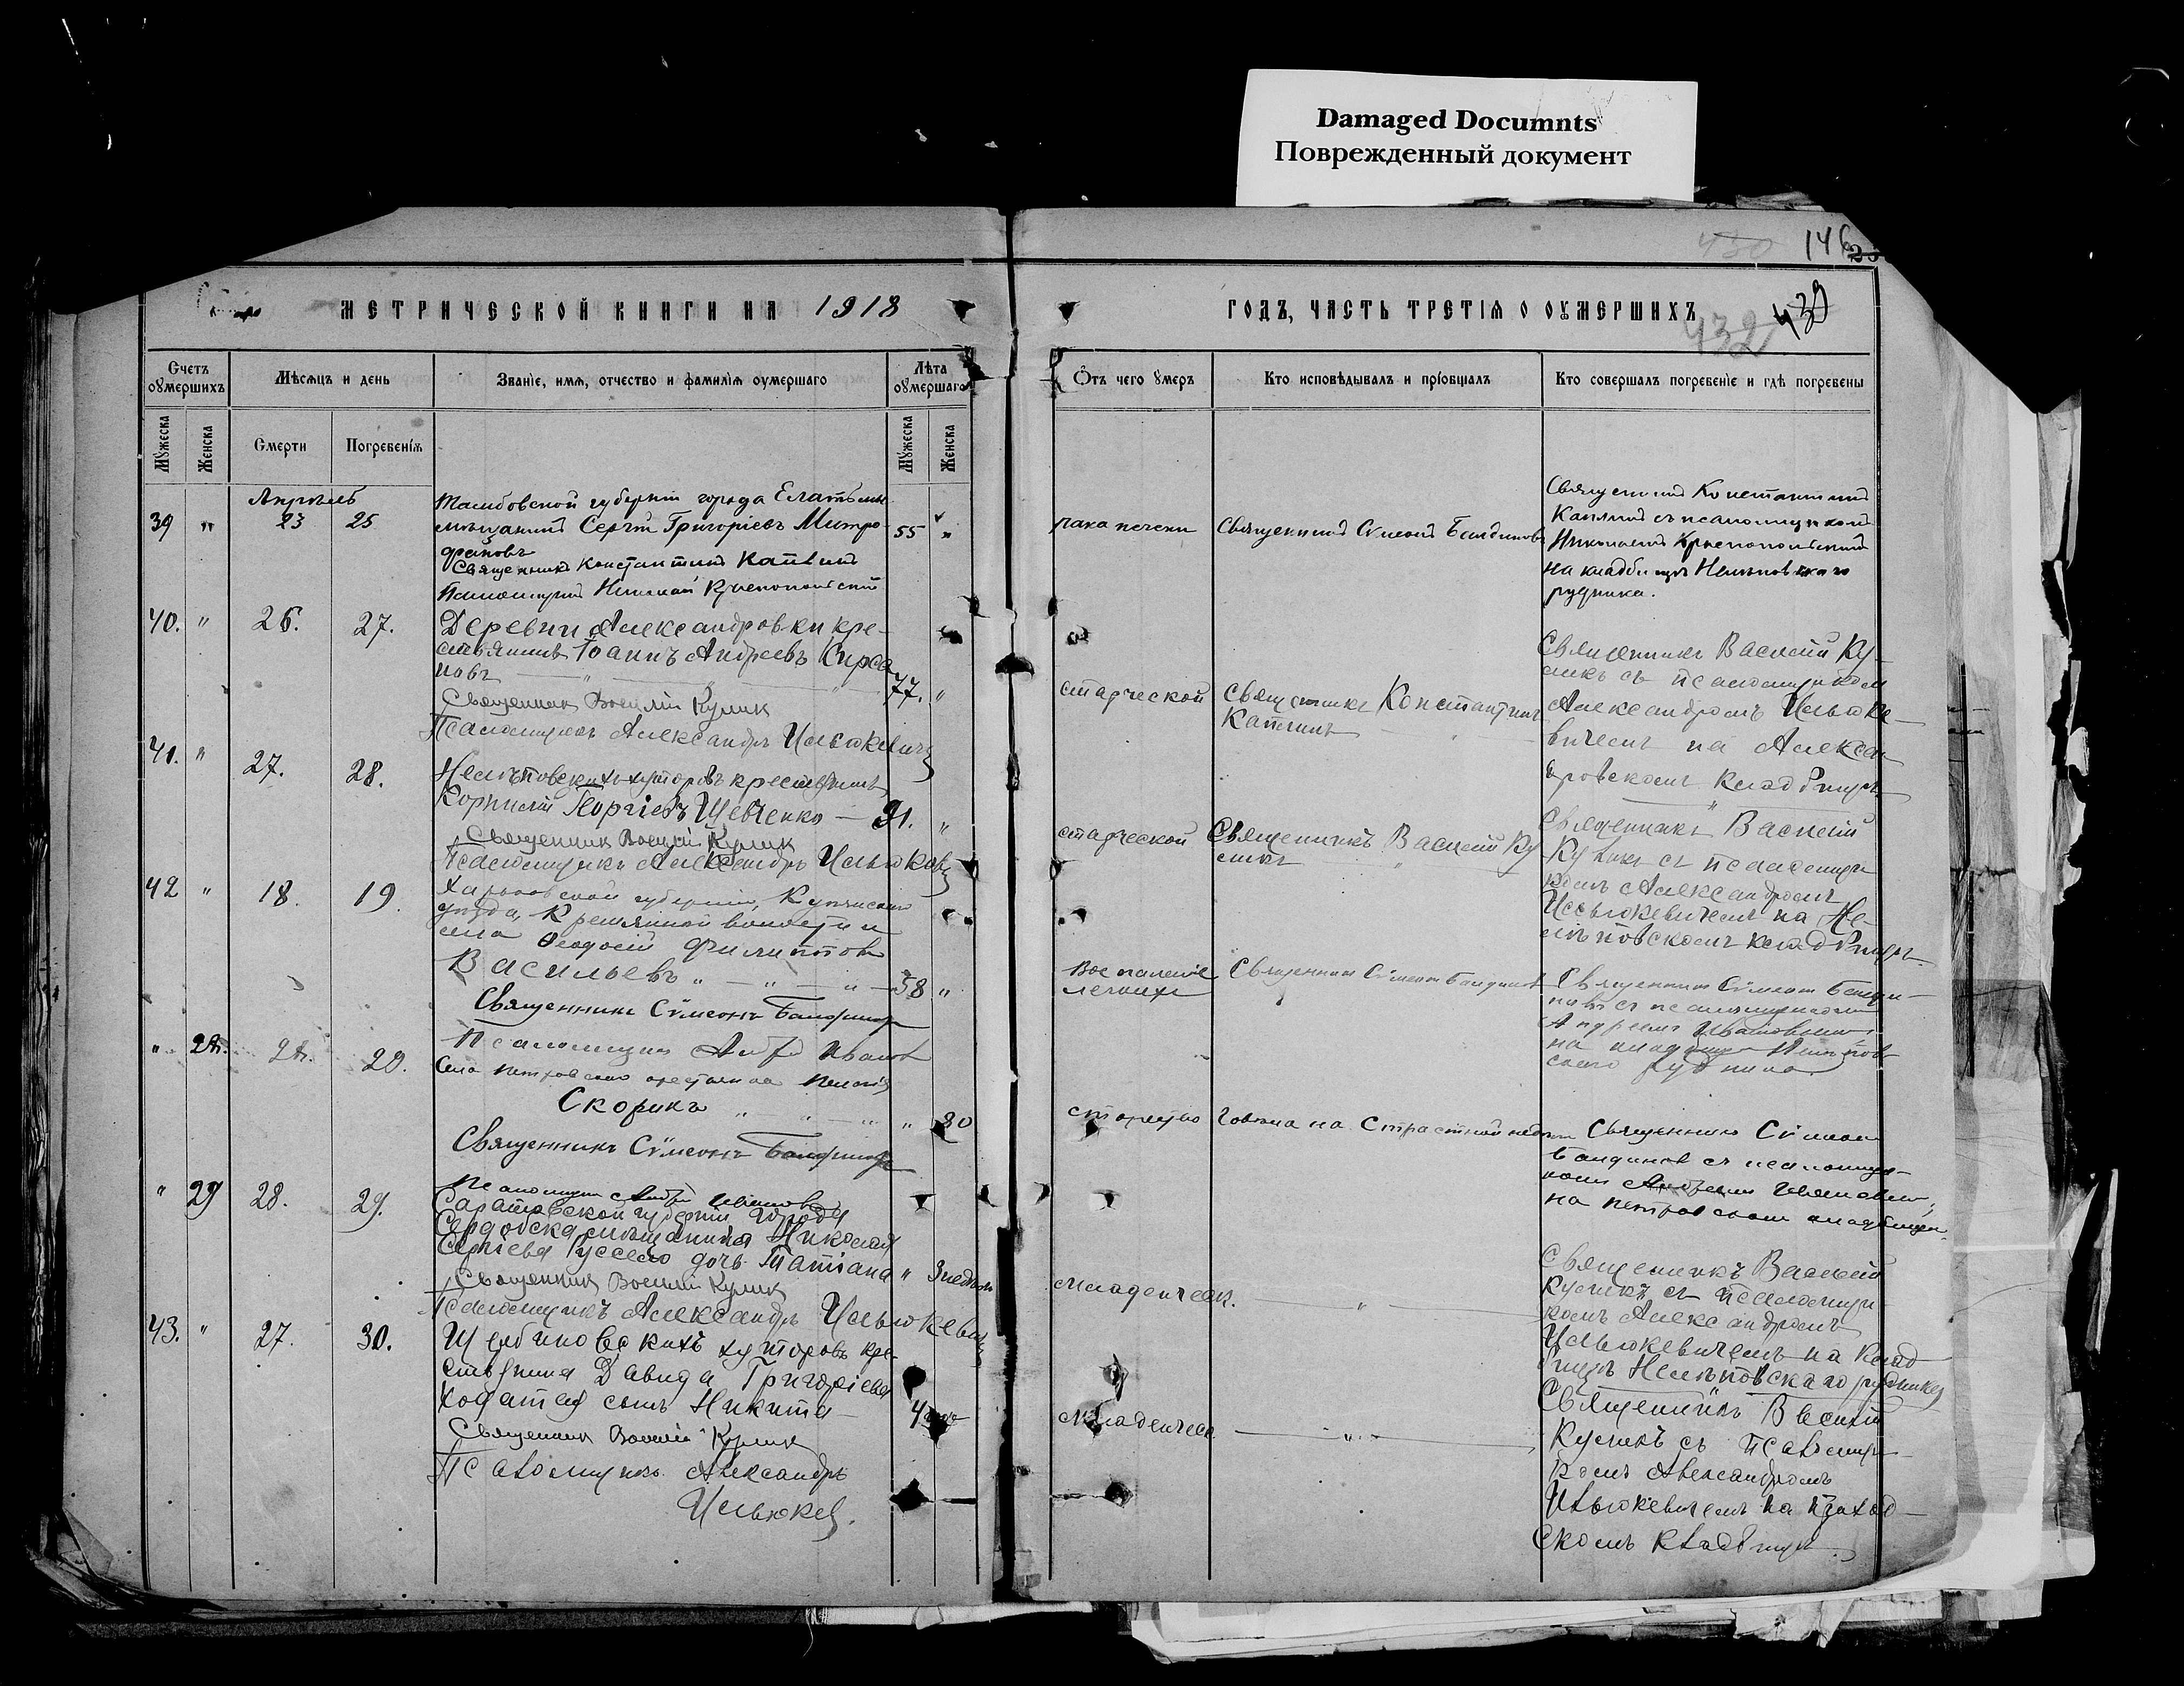 Damaged Documnts
Поврежденный документ
430 146
МЕТРИЧЕСКОЙ КНИГИ НА 1918
ГОДЪ, ЧАСТЬ ТРЕТІЯ О ОУМЕРШИХЪ
432 439
Счетъ оумершихъ
Мѣсяцъ и день
Званіе, имя, отчество и фамилія оумершаго
Лѣта оумершаго
Мужеска
Женска
Смерти
Погребенія
Мужеска
Женска
Отъ чего умеръ
Кто исповѣдывалъ и пріобщалъ
Кто совершалъ погребеніе и гдѣ погребены
Апрѣль
39 " 23 25
Тамбовской губерніи города Елатьмы
мѣщанинъ Сергѣй Григоріевъ Митро-
фановъ
55 "
Священникъ Константинъ Каплинъ
Псаломщикъ Николай Краснопольскій
рака печени
Священникъ Сѵмеонъ Бандиновъ
Священникъ Константинъ
Каплинъ съ псаломщикомъ
Николаемъ Краснопольскимъ
на кладбищѣ Нелѣповскаго
рудника.
40. " 26. 27.
Деревни Александровки кре-
стьянинъ Іоаннъ Андреевъ Кирса
новъ
77. "
Священникъ Василій Куликъ
Псаломщикъ Александръ Ильюкевичъ
старческой
Священникъ Константинъ
Каплинъ
Священникъ Василій Ку-
ликъ съ псаломщикомъ
Александромъ Ильюке-
вичемъ на Алекса
ндровскомъ кладбищѣ
41. " 27. 28.
Нелѣповскихъ хуторовъ крестьянинъ
Корнилій Георгіевъ Шевченко — 91. "
Священникъ Василій Куликъ
Псаломщикъ Александръ Ильюкевъ
старческой
Священникъ Василій Ку
ликъ
Священникъ Василій
Куликъ съ псаломщи
комъ Александромъ
Ильюкевичемъ на Не-
лѣповскомъ кладбищѣ.
42 " 18. 19.
Харьковской губерніи, Купянскаго
уѣзда, Кремянной волости и
села Ѳеодосій Филипповъ
Васильевъ " — " — " — 58 "
Священникъ Сѵмеонъ Бандиновъ
Псаломщикъ Андрей Ивановъ
Воспаленіе
легкихъ
Священникъ Сѵмеонъ Бандиновъ
Священникъ Сѵмеонъ Банди-
новъ съ псаломщикомъ
Андреемъ Ивановымъ
на кладбищѣ Нелѣпов
скаго рудника
" 28. 28. 29.
Села Петровскаго крестьянка Пелагія
Скорикъ " " " " 80
Священникъ Сѵмеонъ Бандиновъ
Псаломщикъ Андрей Ивановъ
старость
Говѣла на Страстной недѣли
Священникъ Сѵмеонъ
Бандиновъ съ псаломщи-
комъ Андреемъ Ивановымъ,
на Петровскомъ кладбищѣ.
" 29 28. 29.
Саратовской губерніи города
Сердобска мѣщанина Николая
Сергіева Руссело дочь Татіана " 3 недѣли
Священникъ Василій Куликъ
Псаломщикъ Александръ Ильюкевичъ
младенческ.
Священникъ Василій
Куликъ съ псаломщи-
комъ Александромъ
Ильюкевичемъ на клад
бищѣ Нелѣповскаго рудника
43. " 27. 30.
Щербиновскихъ хуторовъ кре-
стьянина Давида Григоріева
Ходатая сынъ Никита — 4
Священникъ Василій Куликъ
Псаломщикъ Александръ
Ильюкев.
младенческ.
Священникъ Василій
Куликъ съ псаломщи-
комъ Александромъ
Ильюкевичемъ на приход-
скомъ кладбищѣ.